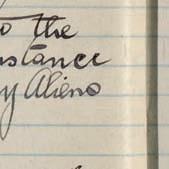 to the
nstance
y Aliens